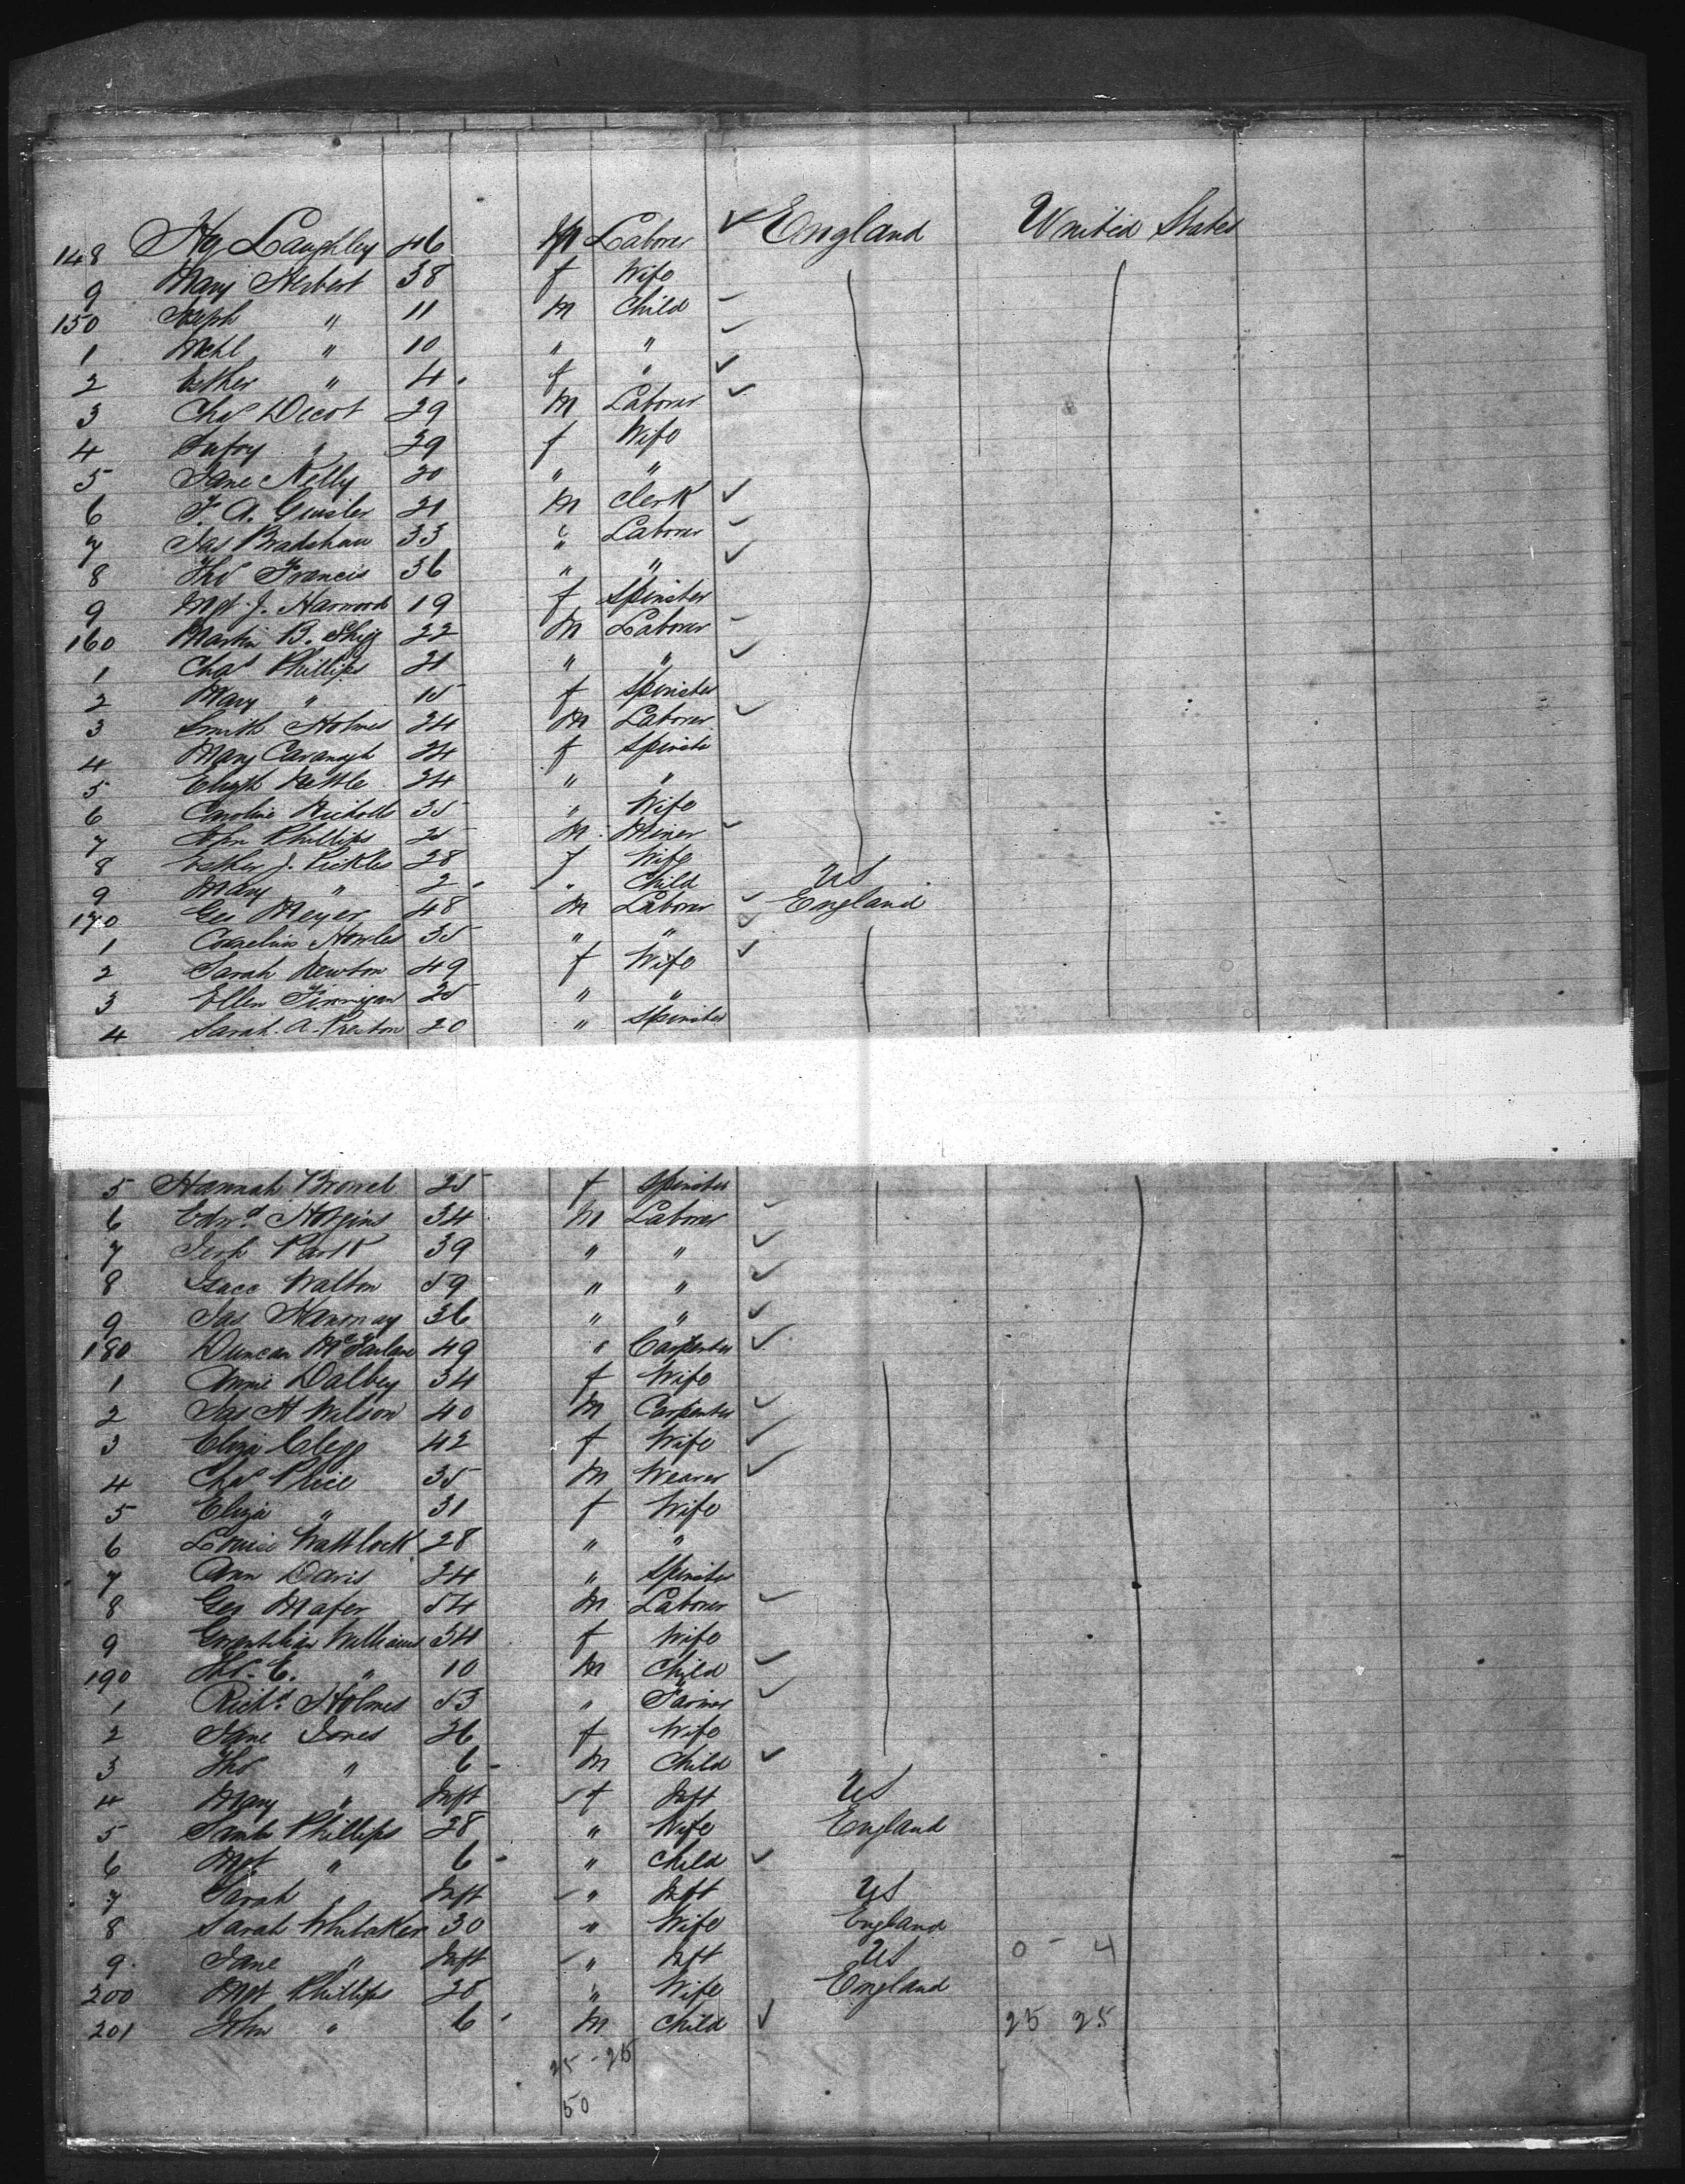 148 Hy Laughley 46 M Laborer ✓ England United States
9 Mary Herbert 38 f Wife
150 Steph " 11 M Child
1 Mchl " 10 " "
2 Esther " 4 f "
3 Chas 29 M Laborer
4 " 29 f Wife
5 Jane Kelly 20 " "
6 F. A. 21 M Clerk
7 Jas Bradshaw 33 " Laborer
8 Thos Francis 36 " "
9 Mgt. J. Harwood 19 f Spinster
160 Martin B. 22 M Laborer
1 Chas Phillips 21 " "
2 Mary " 15 f Spinster
3 Smith Holmes 24 M Laborer
4 Mary Cavanagh 24 f Spinster
5 Elizth Kettle 24 " "
6 Caroline Nicholls 35 " Wife
7 John Phillips 25 M Miner
8 Esther J. Pickles 28 f Wife
9 Mary " 2 " Child US
170 Geo Meyer 48 M Laborer England
1 Cornelius Howles 35 " "
2 Sarah Newton 49 f Wife
3 Ellen Finnigan 25 " "
4 Sarah A. Preston 20 " Spinster
5 Hannah 25 f Spinster
6 Edwd. Hotgins 34 M Laborer
7 Park 39 " "
8 Isacc Walton 59 " "
9 Jas Hannay 36 " "
180 Duncan McFarlane 49 " Carpenter
1 Annie Dalbey 34 f Wife
2 Jas H Wilson 40 M Carpenter
3 Eliza Clegg 42 f Wife
4 Chas Price 35 M Weaver
5 Eliza " 31 f Wife
6 Louise 28 " "
7 Ann Davis 24 " Spinster
8 Geo Mafer 54 M Laborer
9 Williams 34 f Wife
190 Thos. E. " 10 M Child
1 Richd. Holmes 53 " Farmer
2 Jane Jones 26 f Wife
3 Thos " 6 M Child
4 Mary " Inft f Inft US
5 Phillips 28 " Wife England
6 Mgt " 6 " Child
7 Sarah Inft " Inft US
8 Sarah Whitaker 30 " Wife England
9 Jane " Inft " Inft US 0 - 4
200 Mgt Phillips 28 " Wife England
201 John " 6 M Child 25 25
25 - 25
50